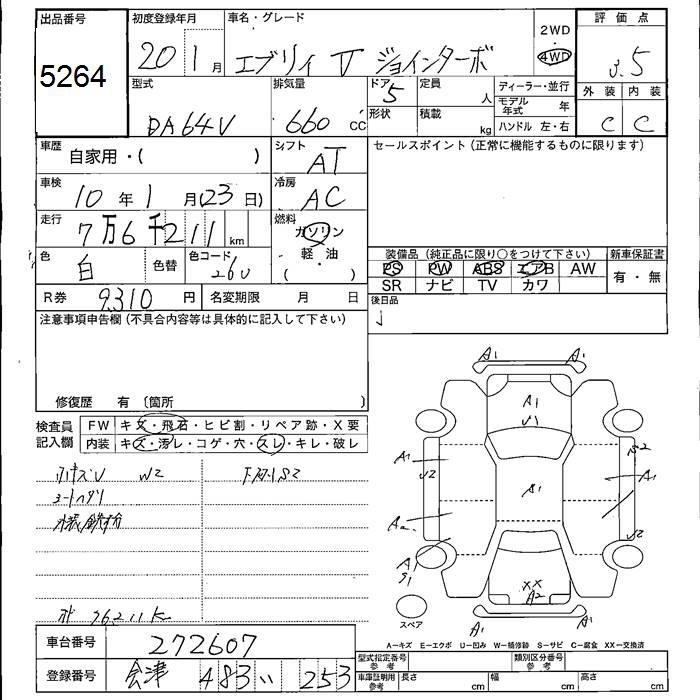 出品番号
5264
初度登録年月
20 1月
車名・グレード
エブリィ V ジョインターボ
2WD
4WD
評価点
3.5
型式
DA64V
排気量
660 CC
ドア
5
形状
定員
人
積載
kg
ディーラー・並行
モデル年式 年
ハンドル 左・右
外装 内装
C C
車歴
自家用・( )
シフト
AT
セールスポイント (正常に機能するものに限ります)
車検
10年 1月(23日)
冷房
AC
走行
7万6千211 km
燃料
ガソリン
軽・油
( )
色
白
色替
色コード
26U
装備品 (純正品に限り〇をつけて下さい)
PS PW ABS エアB AW
SR ナビ TV カワ
新車保証書
有・無
R券 9310 円
名変期限 月 日
後日品
注意事項申告欄 (不具合内容等は具体的に記入して下さい)
修復歴 有 〔箇所 〕
検査員記入欄
FW キズ・飛石・ヒビ割・リペア跡・X要
内装 キズ・汚レ・コゲ・穴・スレ・キレ・破レ
W2
外装鉄粉
76211K
A1 A1
A1
U1
A1
U2
S2
A1
S1
A2
U2
A
S1
XX
A2
A1 A1
スペア
A－キズ E－エクボ U－凹み W－補修跡 S－サビ C－腐食 XX－交換済
車台番号
272607
登録番号
会津 483 い 253
型式指定番号 参考
類別区分番号 参考
車庫証明用 参考
長さ cm
幅 cm
高さ cm